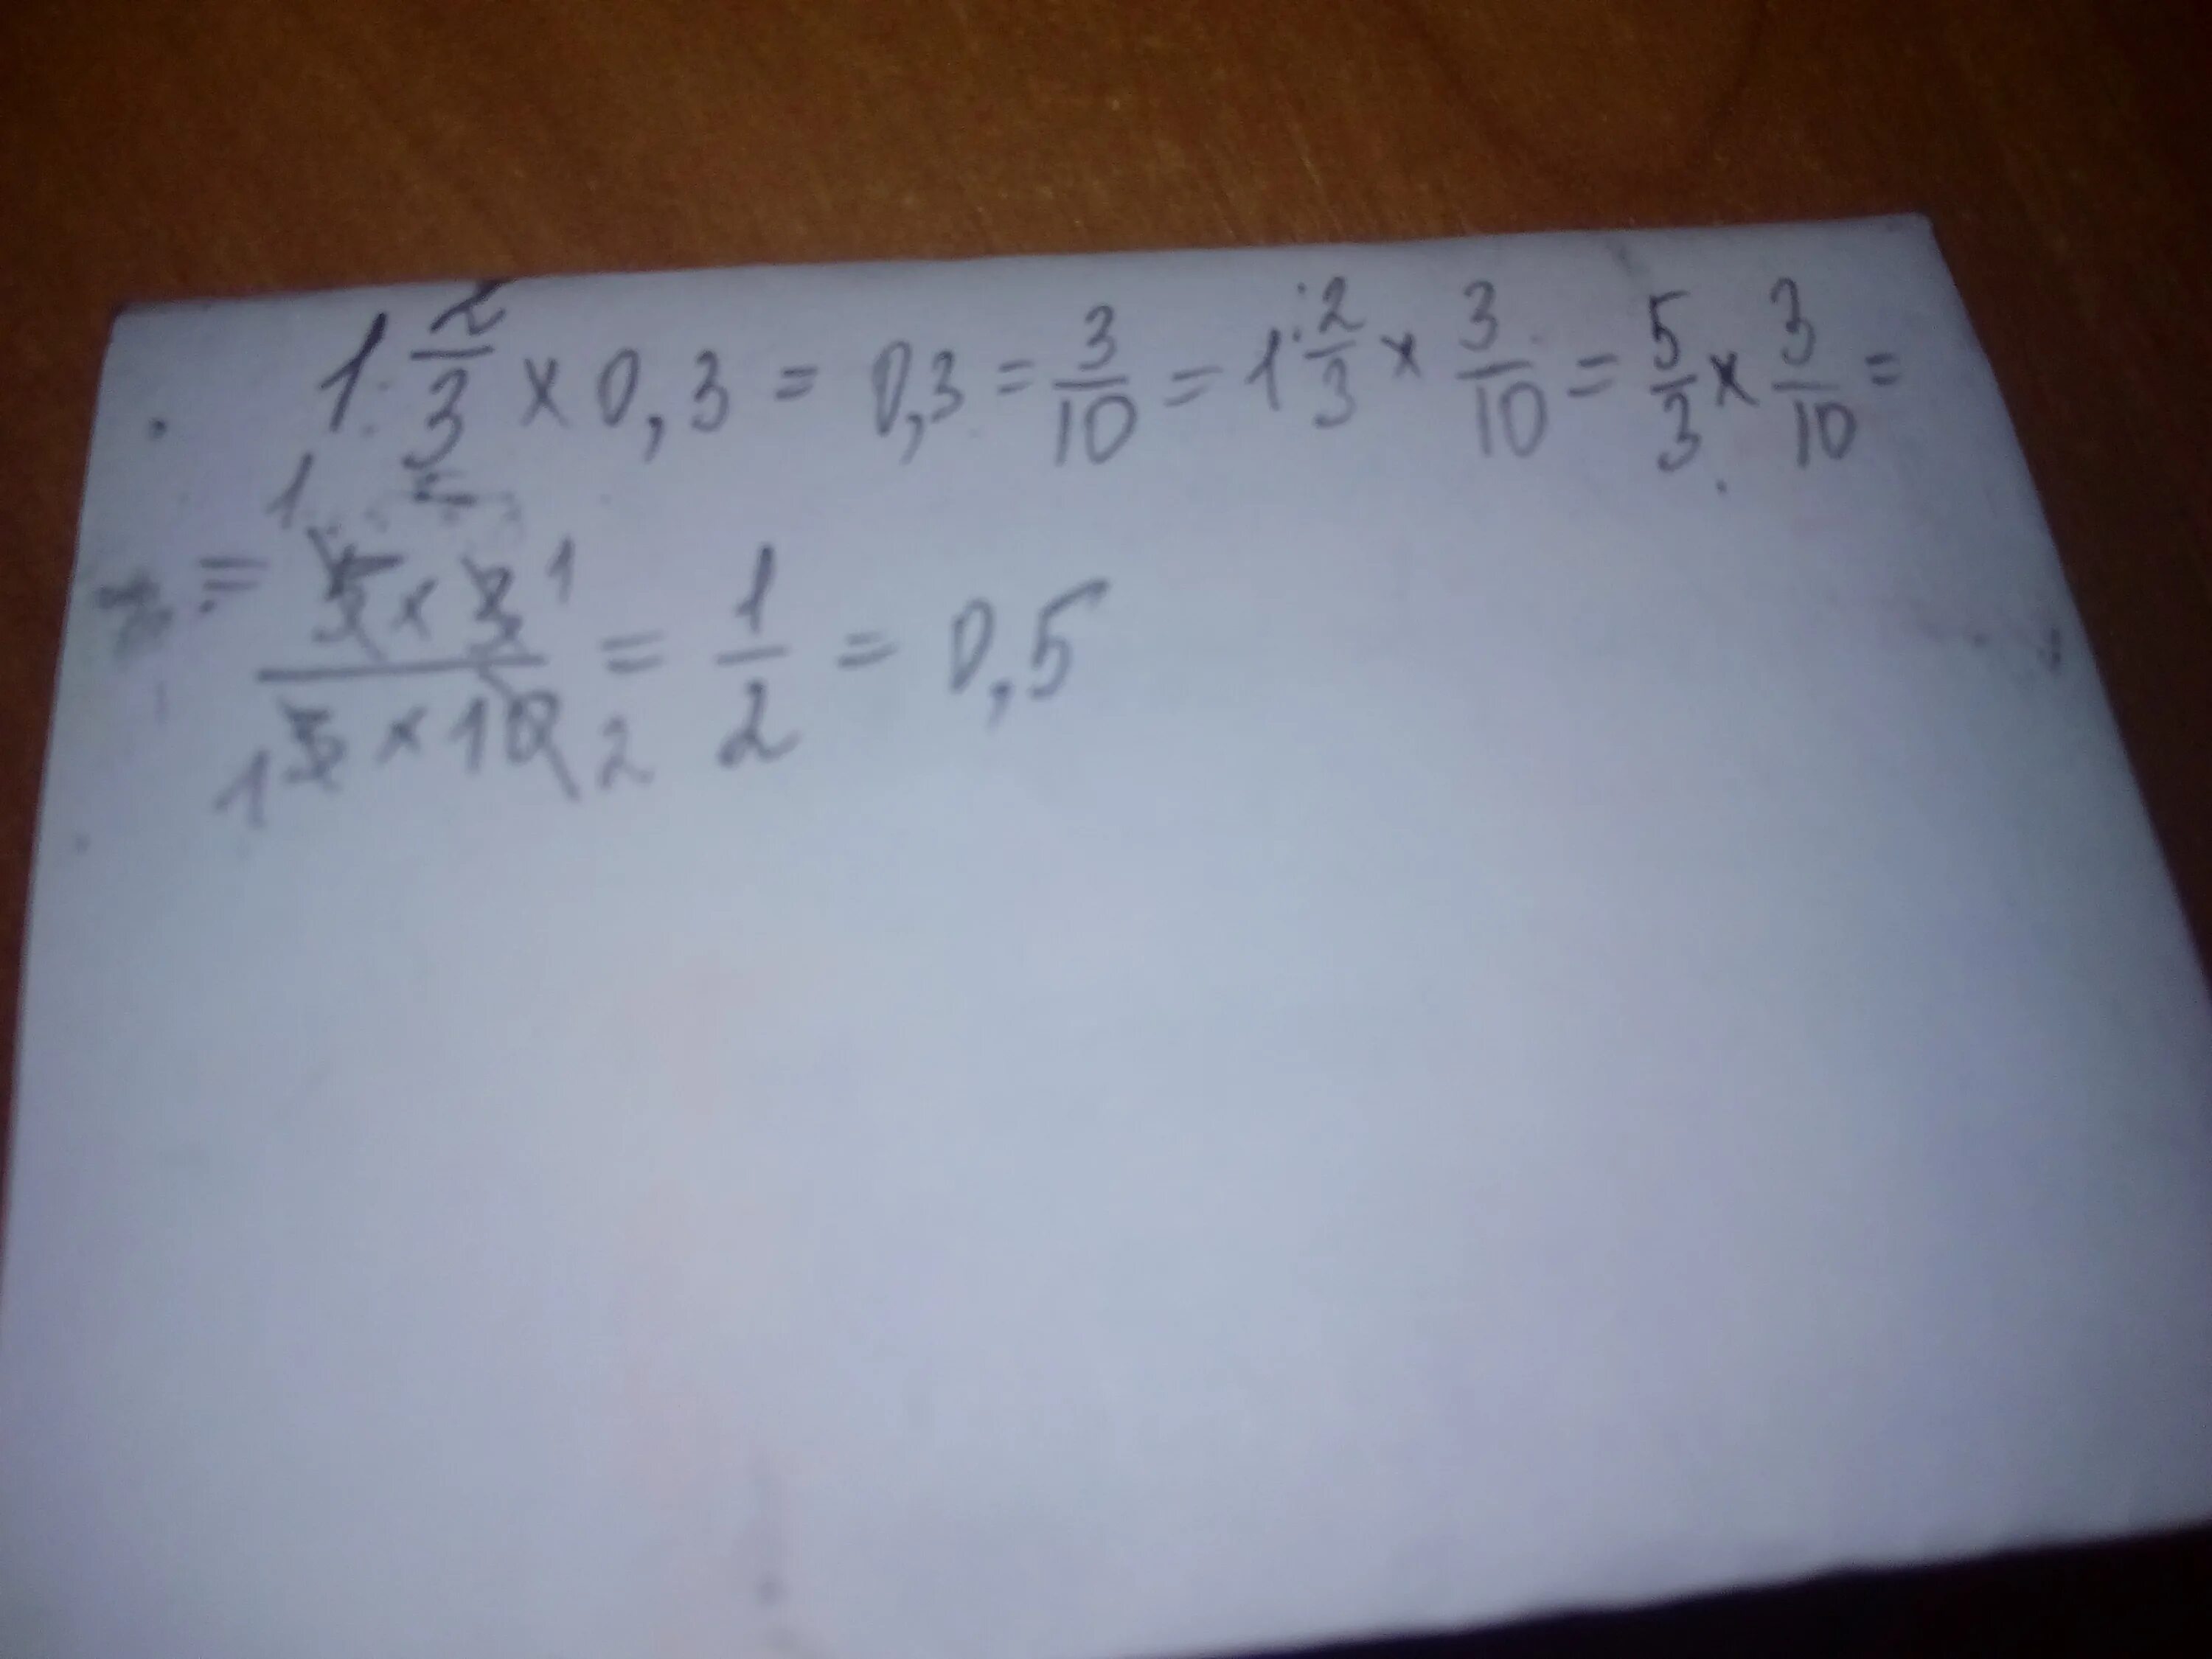 1 2/3 × 0,3 = 0,3 = 3/10 = 1 2/3 × 3/10 = 5/3 × 3/10 =
= 5 × 3 / 3 × 10 = 1/2 = 0,5